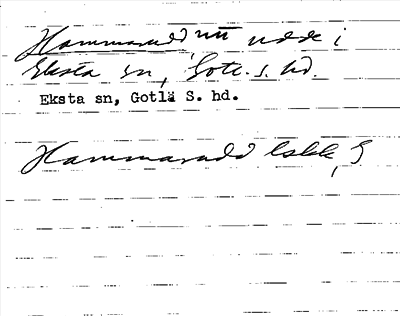 Hammarudd nu udde i
Eksta sn, Gotl. s. hd.
Eksta sn, Gotlä S. hd.
Hammarudd